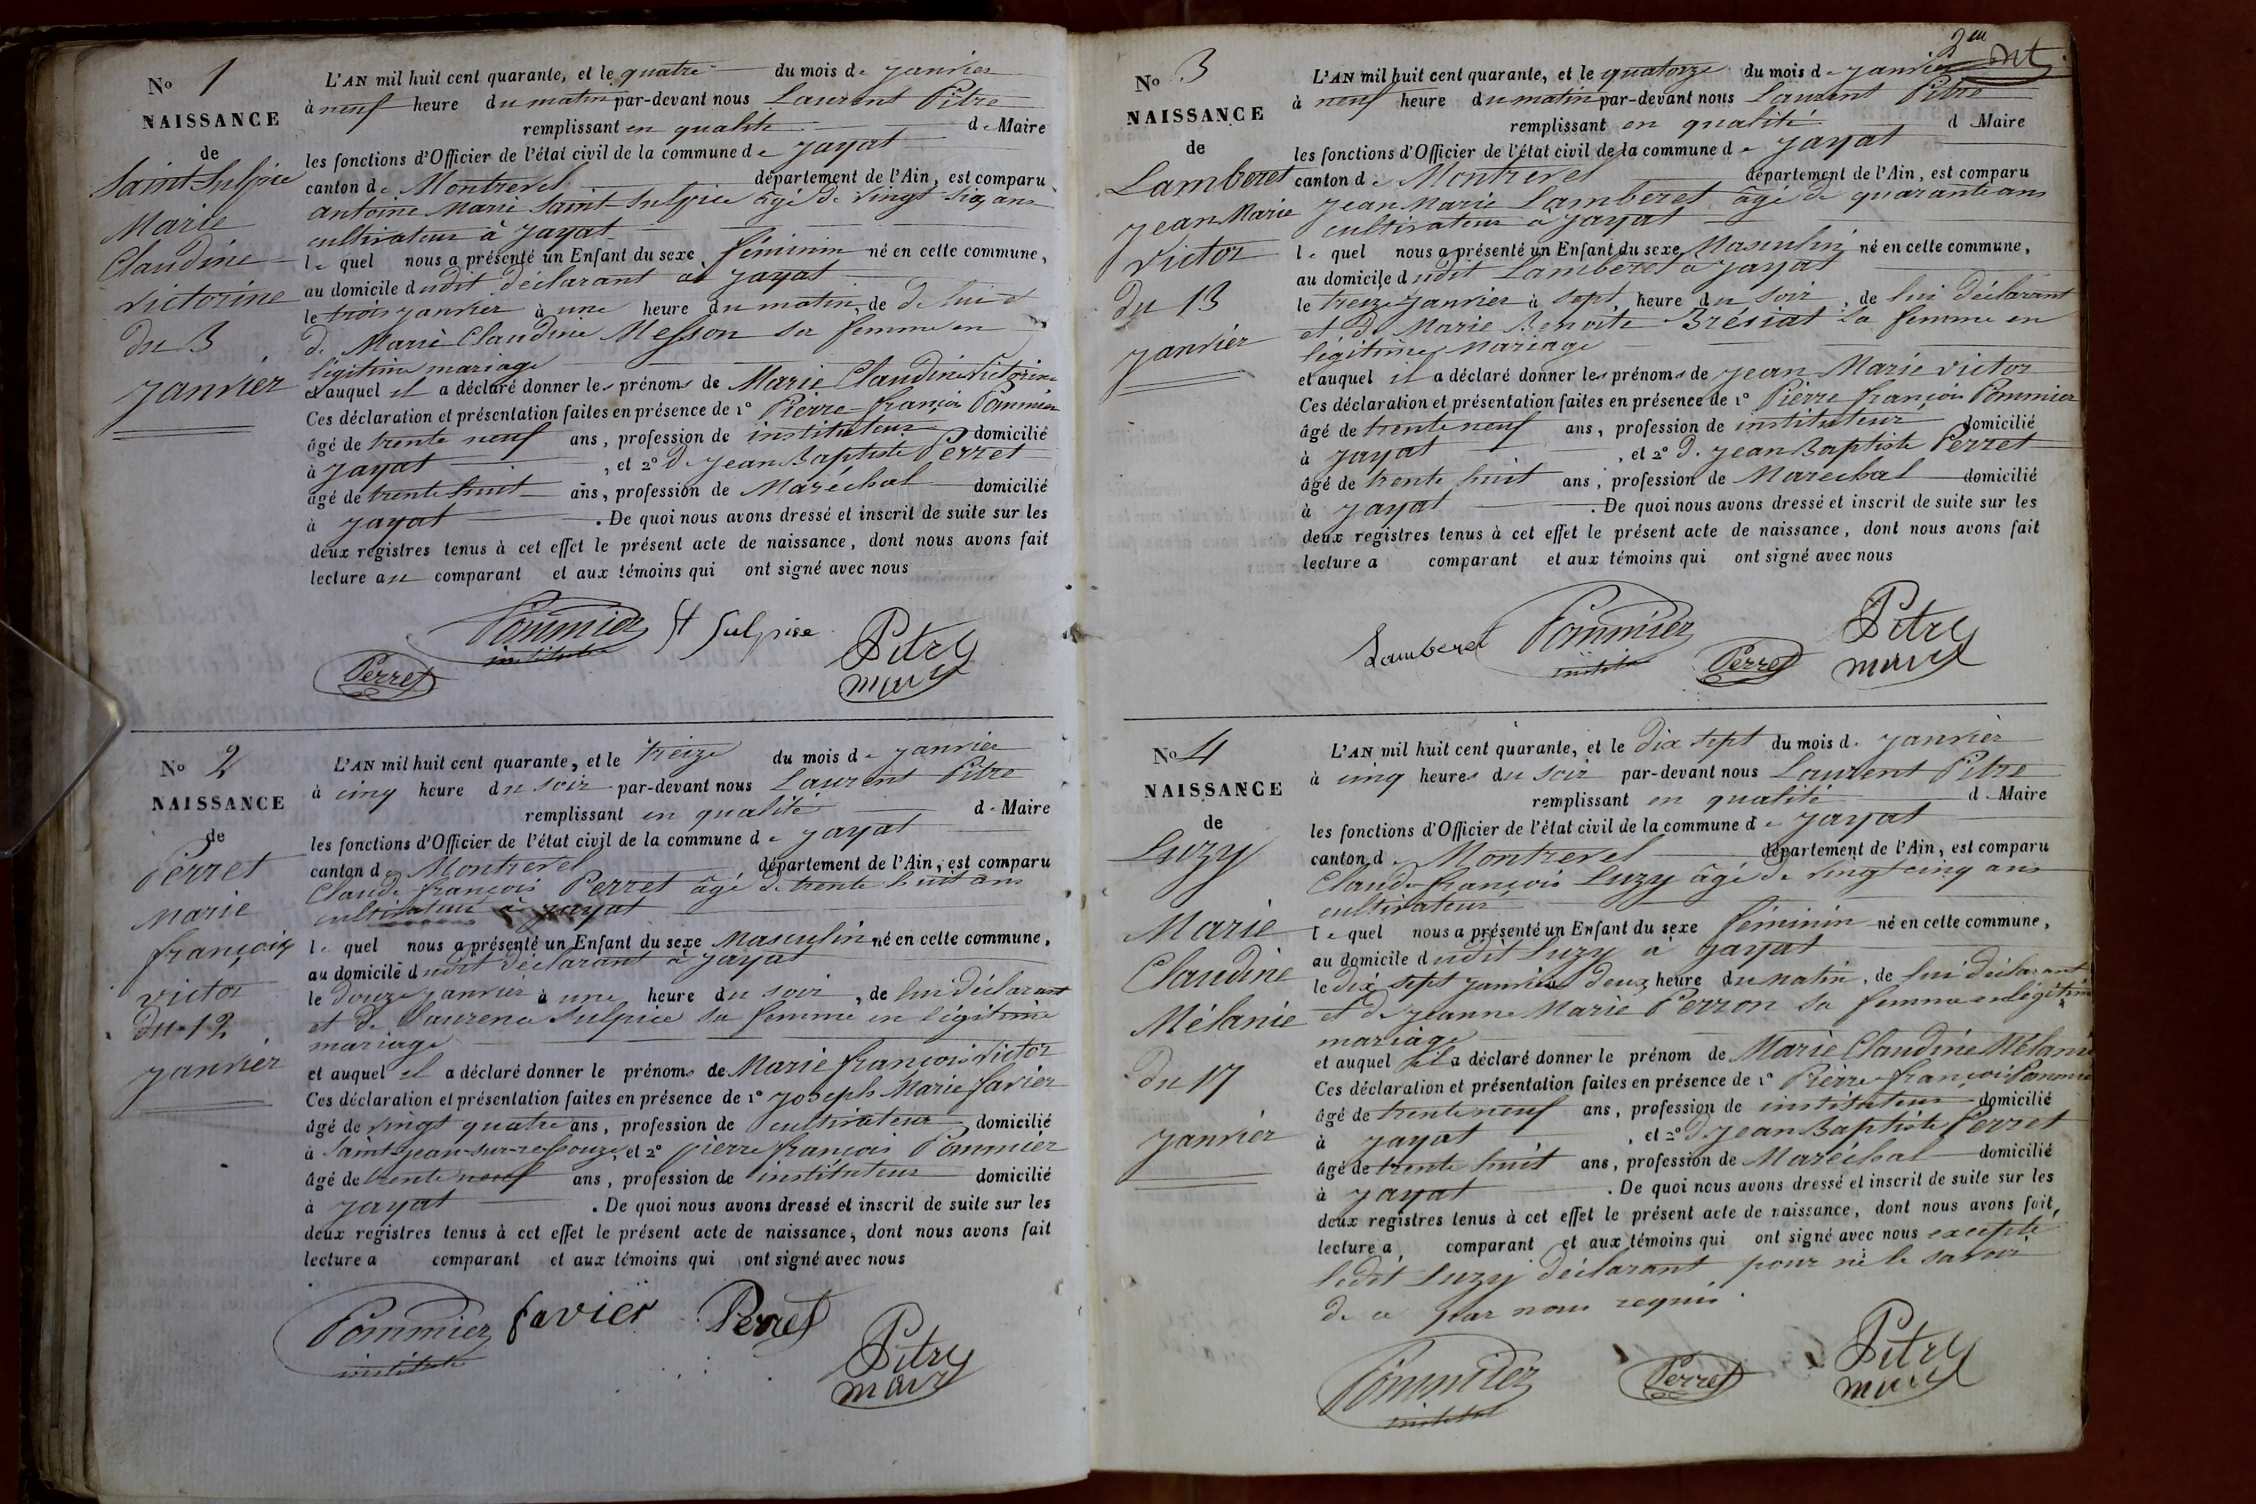 No 1
NAISSANCE
de
Saint Sulpice
Marie
Claudine
Victorine
du 3
janvier
L'AN mil huit cent quarante, et le quatre du mois de janvier
à neuf heure du matin par-devant nous Laurent Pitre
remplissant en qualité de Maire
les fonctions d'Officier de l'état civil de la commune de jayat
canton de Montrevel département de l'Ain, est comparu
antoine Marie Saint Sulpice âgé de vingt six ans
cultivateur à jayat
le quel nous a présenté un Enfant du sexe féminin né en cette commune,
au domicile dudit déclarant à jayat
le trois janvier à une heure du matin, de de lui et
de Marie Claudine Messon sa femme en
légitime mariage
et auquel il a déclaré donner les prénoms de Marie Claudine Victorine
Ces déclaration et présentation faites en présence de 1° Pierre françois Pommier
âgé de trente neuf ans, profession de instituteur domicilié
à jayat, et 2° de jean Baptiste Perret
âgé de trente huit ans, profession de Maréchal domicilié
à jayat. De quoi nous avons dressé et inscrit de suite sur les
deux registres tenus à cet effet le présent acte de naissance, dont nous avons fait
lecture au comparant et aux témoins qui ont signé avec nous
Pommier St Sulpice Pitre
institut
Perret maire
No 2
NAISSANCE
de
Perret
Marie
françois
victor
du 12
janvier
L'AN mil huit cent quarante, et le treize du mois de janvier
à cinq heure du soir par-devant nous Laurent Pitre
remplissant en qualité de Maire
les fonctions d'Officier de l'état civil de la commune de jayat
canton de Montrevel département de l'Ain, est comparu
Claude françois Perret âgé de trente huit ans
cultivateur à jayat
le quel nous a présenté un Enfant du sexe Masculin né en cette commune,
au domicile dudit déclarant à jayat
le douze janvier à une heure du soir, de lui déclarant
et de Laurence Sulpice sa femme en légitime
mariage
et auquel il a déclaré donner le prénoms de Marie françois victor
Ces déclaration et présentation faites en présence de 1° joseph Marie favier
âgé de vingt quatre ans, profession de cultivateur domicilié
à Saint-jean-sur-reßouze, et 2° pierre françois Pommier
âgé de trente neuf ans, profession de instituteur domicilié
à jayat. De quoi nous avons dressé et inscrit de suite sur les
deux registres tenus à cet effet le présent acte de naissance, dont nous avons fait
lecture a comparant et aux témoins qui ont signé avec nous
Pommier favier Perret
institut
Pitre
maire
2em
No 3
NAISSANCE
de
Lamberet
jean Marie
victor
du 13
janvier
L'AN mil huit cent quarante, et le quatorze du mois de janvier
à neuf heure du matin par-devant nous Laurent Pitre
remplissant en qualité d Maire
les fonctions d'Officier de l'état civil de la commune de jayat
canton de Montrevel département de l'Ain, est comparu
jean Marie Lamberet âgé de quarante ans
cultivateur à jayat
le quel nous a présenté un Enfant du sexe Masculin né en cette commune,
au domicile dudit Lamberet à jayat
le treize janvier à sept heure du soir, de lui déclarant
et de Marie Benoite Brésiat sa femme en
légitime mariage
et auquel il a déclaré donner les prénoms de jean Marie victor
Ces déclaration et présentation faites en présence de 1° Pierre françois Pommier
âgé de trente neuf ans, profession de instituteur domicilié
à jayat, et 2° de jean Baptiste Perret
âgé de trente huit ans, profession de Marechal domicilié
à jayat. De quoi nous avons dressé et inscrit de suite sur les
deux registres tenus à cet effet le présent acte de naissance, dont nous avons fait
lecture a comparant et aux témoins qui ont signé avec nous
Lamberet Pommier Perret Pitre
institut maire
No 4
NAISSANCE
de
Luzy
Marie
Claudine
Mélanie
du 17
janvier
L'AN mil huit cent quarante, et le dix sept du mois de janvier
à cinq heures du soir par-devant nous Laurent Pitre
remplissant en qualité de Maire
les fonctions d'Officier de l'état civil de la commune de jayat
canton de Montrevel département de l'Ain, est comparu
Claude françois Luzy âgé de vingt cinq ans
cultivateur
le quel nous a présenté un Enfant du sexe féminin né en cette commune,
au domicile dudit Luzy à jayat
le dix sept janvier à deux heure du matin, de lui déclarant
et de jeanne Marie Perron sa femme en légitime
mariage
et auquel il a déclaré donner le prénom de Marie Claudine Mélanie
Ces déclaration et présentation faites en présence de 1° Pierre françois Pommier
âgé de trente neuf ans, profession de instituteur domicilié
à jayat, et 2° de jean Baptiste Perret
âgé de trente huit ans, profession de Maréchal domicilié
à jayat. De quoi nous avons dressé et inscrit de suite sur les
deux registres tenus à cet effet le présent acte de naissance, dont nous avons fait,
lecture a comparant et aux témoins qui ont signé avec nous excepté
ledit Luzy déclarant pour ne le savoir
de ce par nous requis.
Pommier Perret Pitre
institut maire